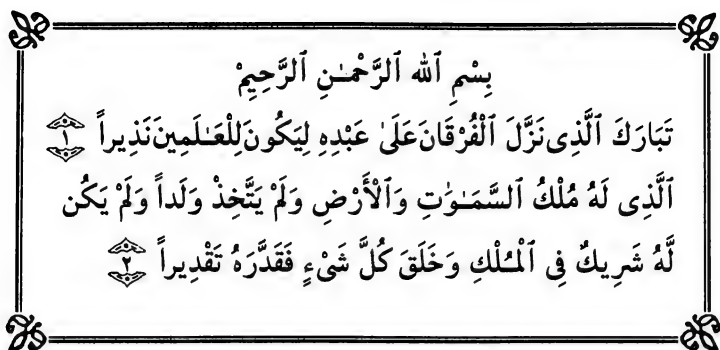 بِسْمِ ٱلله ٱلرَّحْمَـٰنِ ٱلرَّحِيمِْ
تَبَارَكَ ٱلَّذِى نَزَّلَ ٱلْفُرْقَانَ عَلَىٰ عَبْدِهِ لِيَكُونَ لِلْعَـٰلَمِينَ نَذِيراً ١
ٱلَّذِى لَهُ مُلْكُ ٱلسَّمَـٰوَٰتِ وَٱلْأَرْضِ وَلَمْ يَتَّخِذْ وَلَداً وَلَمْ يَكُن
لَّهُ شَرِيكٌ فِى ٱلْمُلْكِ وَخَلَقَ كُلَّ شَىْءٍ فَقَدَّرَهُ تَقْدِيراً ٢